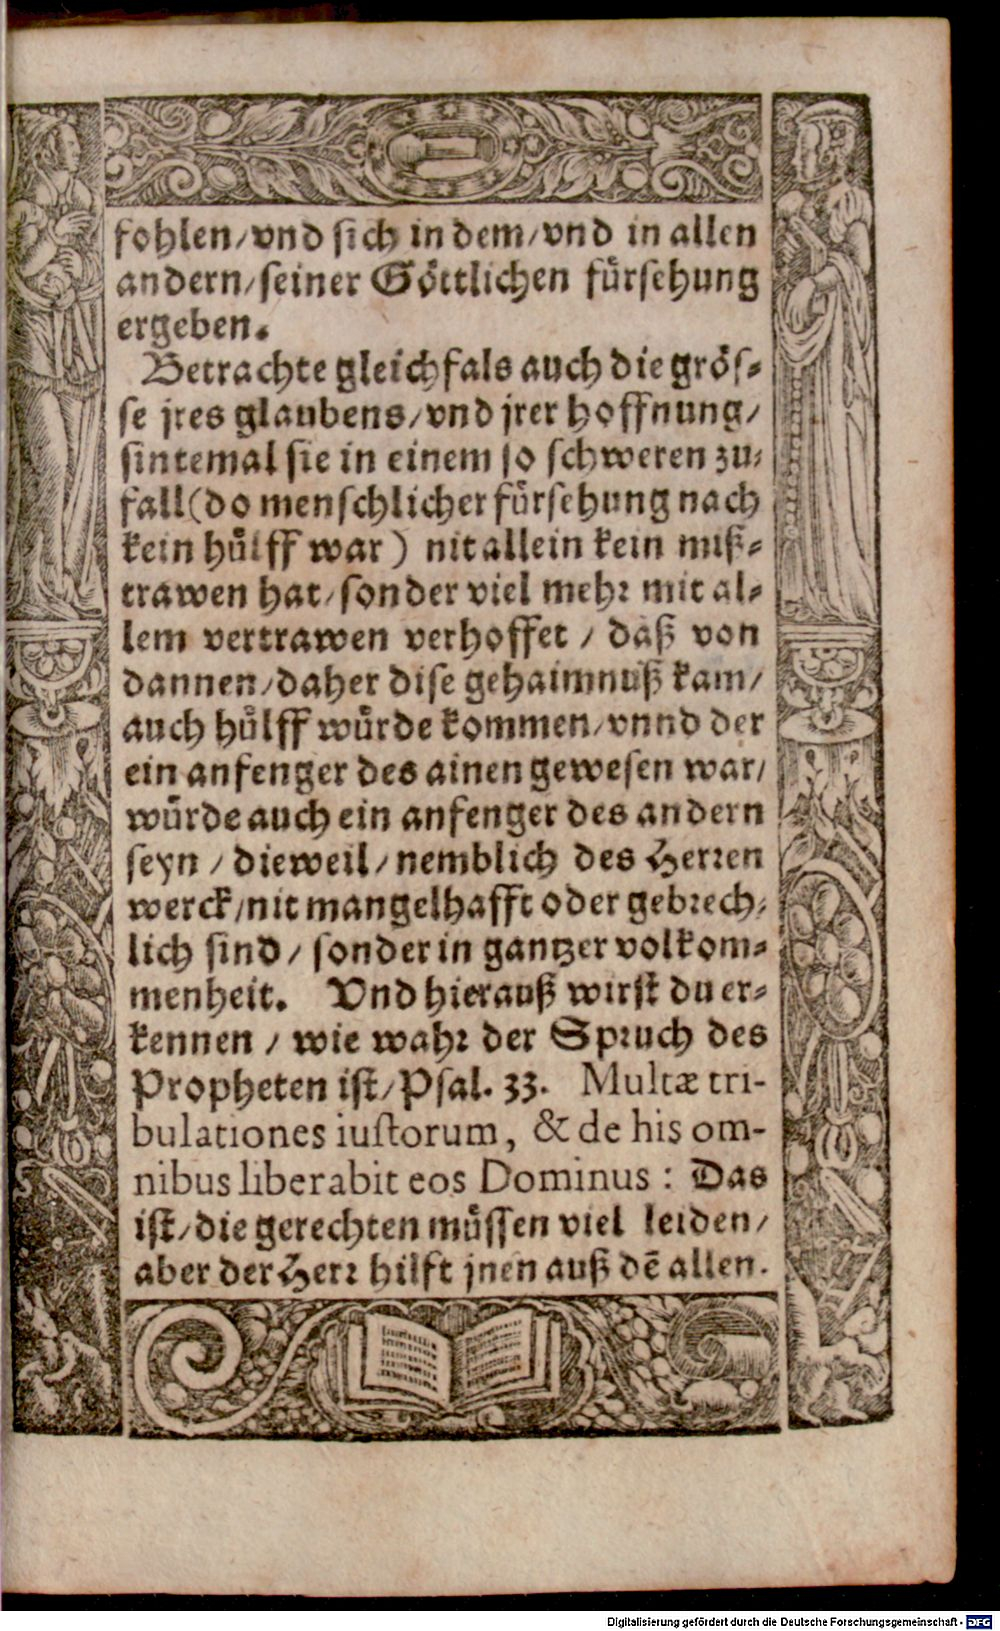 fohlen/vnd sich in dem/vnd in allen
andern/seiner Göttlichen fürsehung
ergeben.
Betrachte gleichfals auch die grös-
se jres glaubens/vnd jrer hoffnung/
sintemal sie in einem so schweren zu-
fall(do menschlicher fürsehung nach
kein hülff war) nit allein kein miß-
trawen hat/sonder viel mehr mit al-
lem vertrawen verhoffet / daß von
dannen/daher dise gehaimnuß kam/
auch hülff würde kommen/vnnd der
ein anfenger des ainen gewesen war/
würde auch ein anfenger des andern
seyn / dieweil/nemblich des Herren
werck/nit mangelhafft oder gebrech-
lich sind/ sonder in gantzer volkom-
menheit. Vnd hierauß wirst du er-
kennen / wie wahr der Spruch des
Propheten ist/Psal. 33. Multæ tri-
bulationes iustorum, & de his om-
nibus liberabit eos Dominus : Das
ist/die gerechten müssen viel leiden/
aber der Herr hilft jnen auß dē allen.
Digitalisierung gefördert durch die Deutsche Forschungsgemeinschaft - DFG